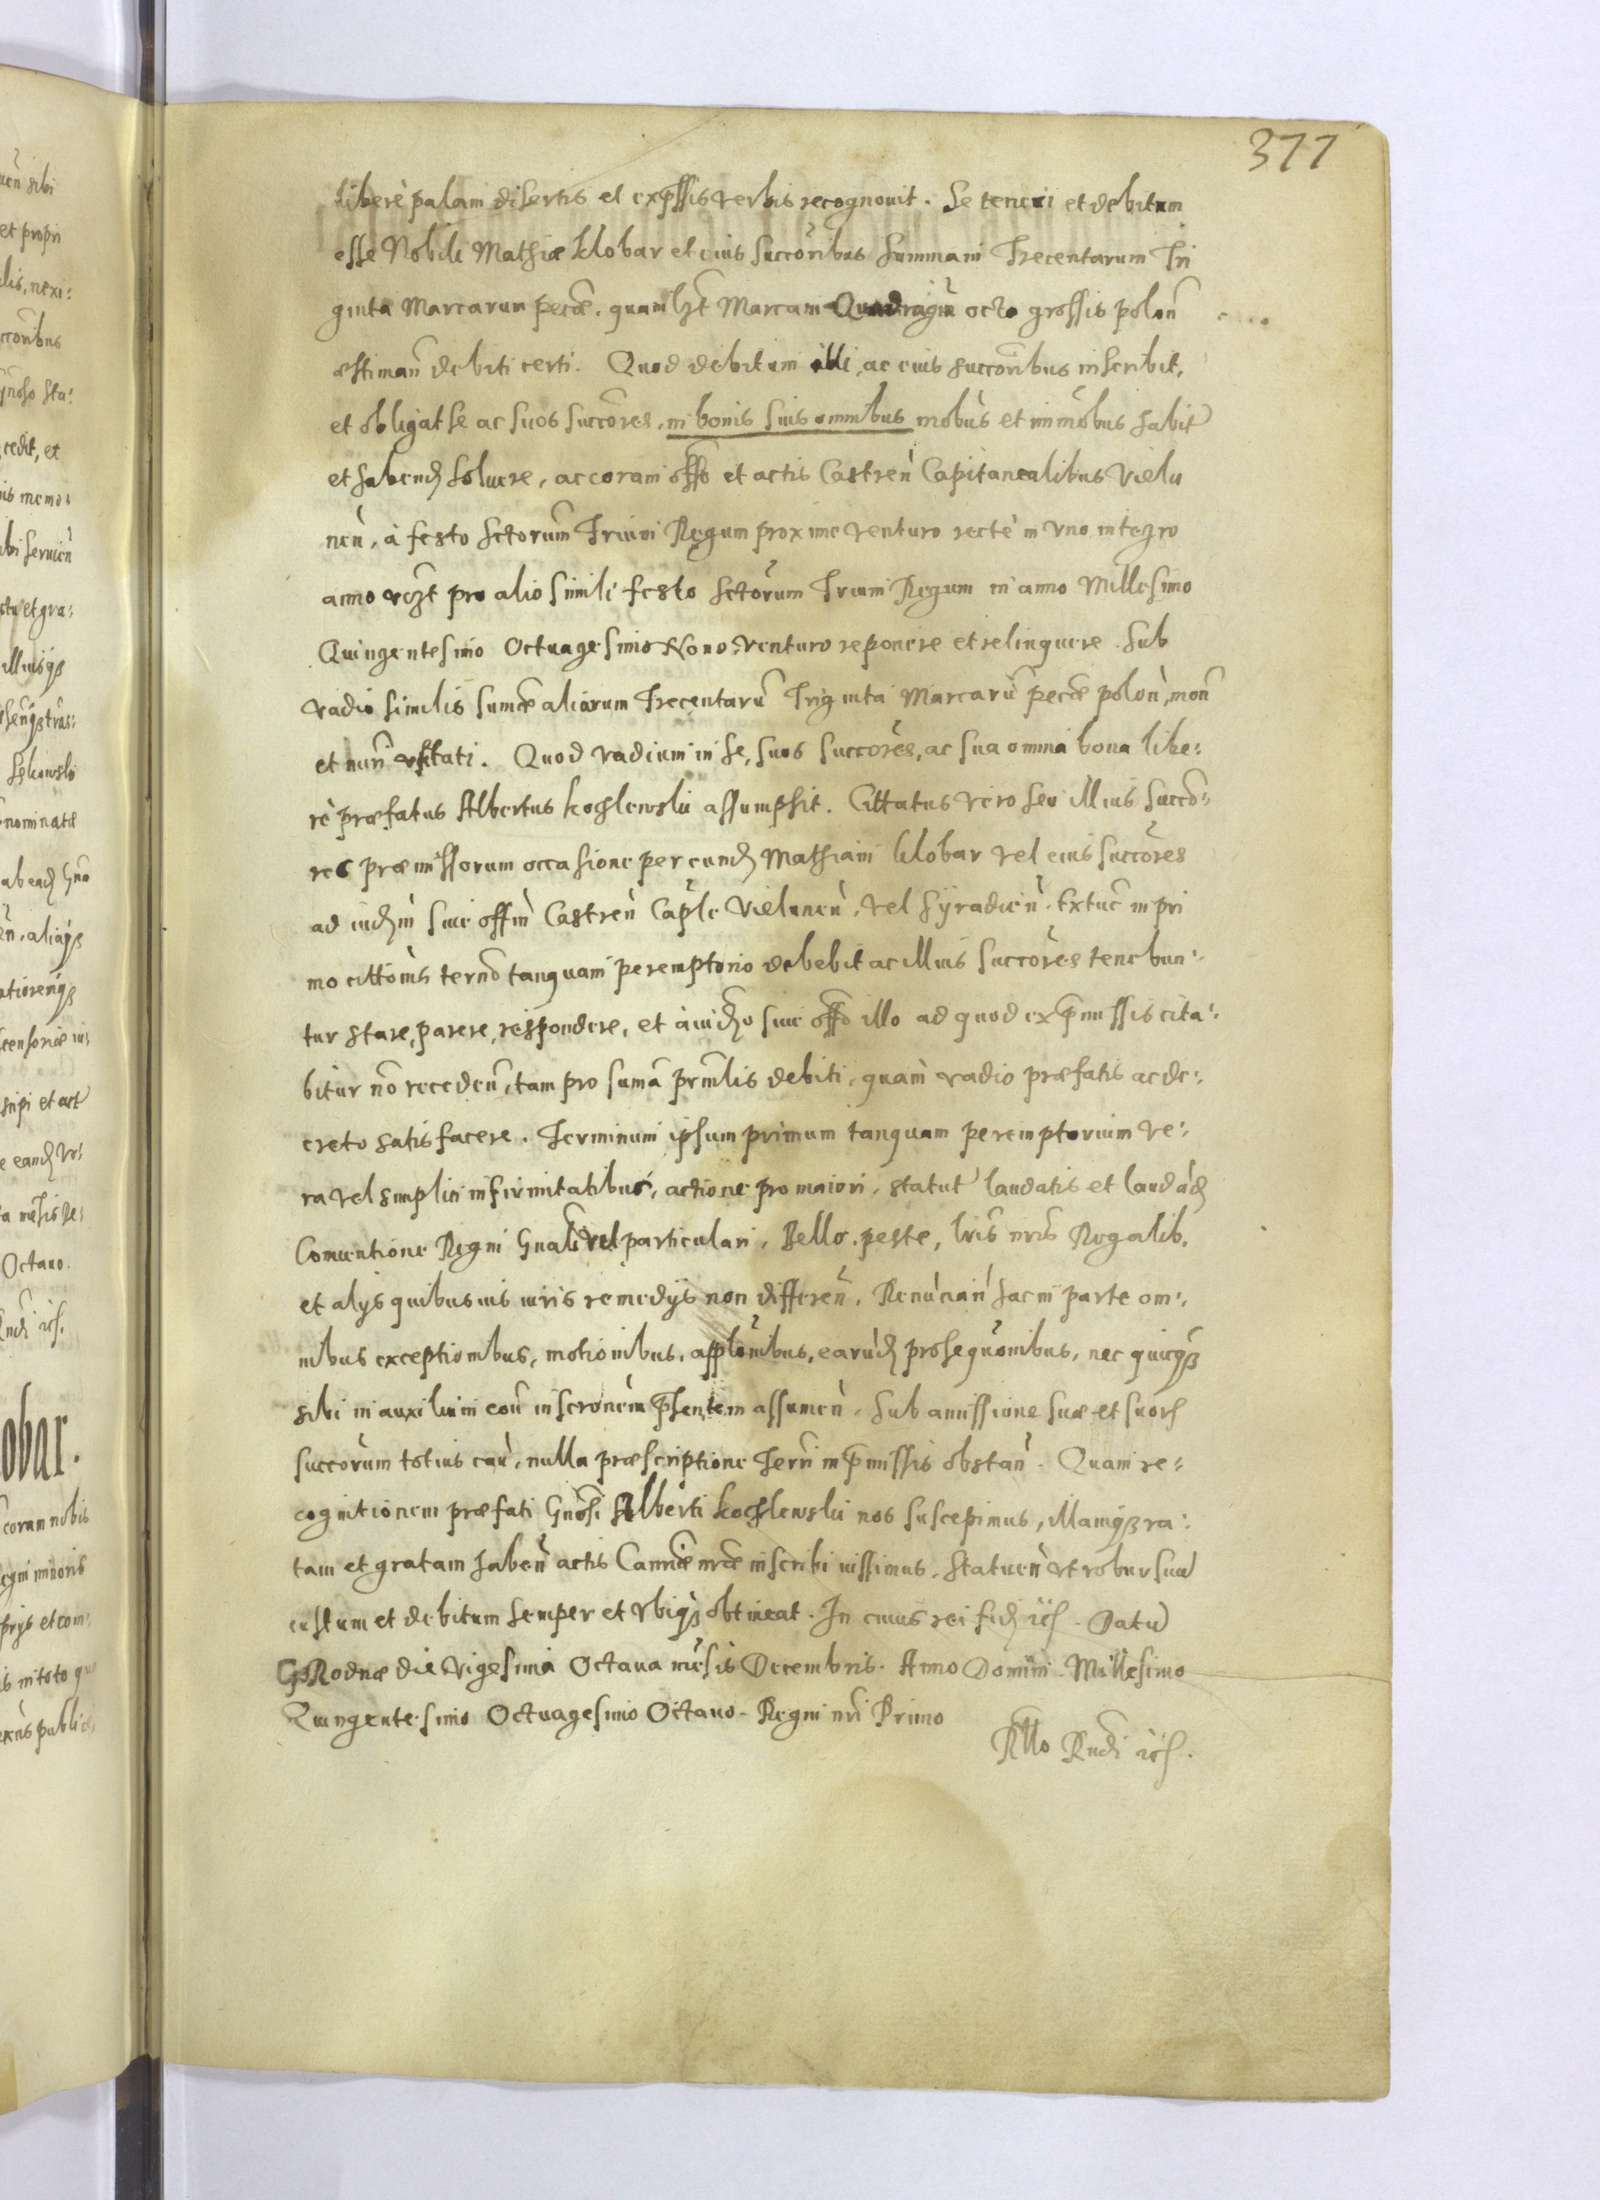 377
liberè palam disertis et exp̃ssis verbis recognouit. Se teneri et debitum
esse Nobili Mathiæ klobar et eius succoribus Summam Trecentarum Tri
ginta Marcarum pecæ. quamlzt Marcam Quadragin octo grossis polon̄
æstiman̄ debiti certi. Quod debitum illi, ac eius succoribus inscribit,
et obligat se ac suos succores, in bonis suis omnibus mobus et immobus habit
et habend solvere, ac coram offo et actis Castren̄ Capitanealibus Vielu
nen̄, à festo sctorum Trium Regum proxime venturo rectè in vno integro
anno vczt pro alio simili festo sctorum Trium Regum in anno Millesimo
Quingentesimo Octuagesimo Nono venturo reponere et relinquere. Sub
vadio similis summæ aliarum Trecentarū Triginta Marcarū pecæ polon̄, mon̄
et nuri vsitati. Quod vadium in se, suos succores, ac sua omnia bona libe:
rè præfatus Albertus kochlewski assumpsit. Cittatus vero seu illius succo:
res præmissorum occasione per eund Mathiam klobar vel eius succores
ad iudm siue offm Castren̄ Caple Vielunen̄, vel Syradien̄. Extuc in pri
mo cittonis termo tanquam peremptorio debebit ac illius succores tenebun:
tur stare, parere, respondere, et à iudo siue offo illo ad quod ex p̃missis cita:
bitur nō receden̄, tam pro suma prnlis debiti, quam vadio præfatis ac de:
creto satisfacere. Terminum ipsum primum tanquam peremptorium ve:
ra vel simplici infirmitatibus, actione pro maiori, statut laudatis et laudad
Conuentione Regni Gnali vel particulari, Bello. peste, lris nris Regalib.
et alys quibusuis iuris remedys non differen̄. Renuncian̄ hac in parte om:
nibus exceptionibus, motionibus, applonibus, earūd prosequonibus, nec quicqz
sibi in auxilium cou inscronem p̃sentem assumen̄. Sub amissione suæ et suorum
succorum totius cau, nulla præscriptione Terri in p̃missis obstan̄. Quam re:
cognitionem præfati Gnosi Alberti kochlewski nos suscepimus, illamqz ra:
tam et gratam haben̄ actis Canriæ nræ inscribi iussimus. Statuen̄ vt robur suū
iustum et debitum semper et vbiqz obtineat. In cuius rei fid etc. Datū
Grodnæ die Vigesima Octaua mēsis Decembris. Anno Domini Millesimo
Quingentesimo Octuagesimo Octauo. Regni nri Primo
Rllo Rndi etc.